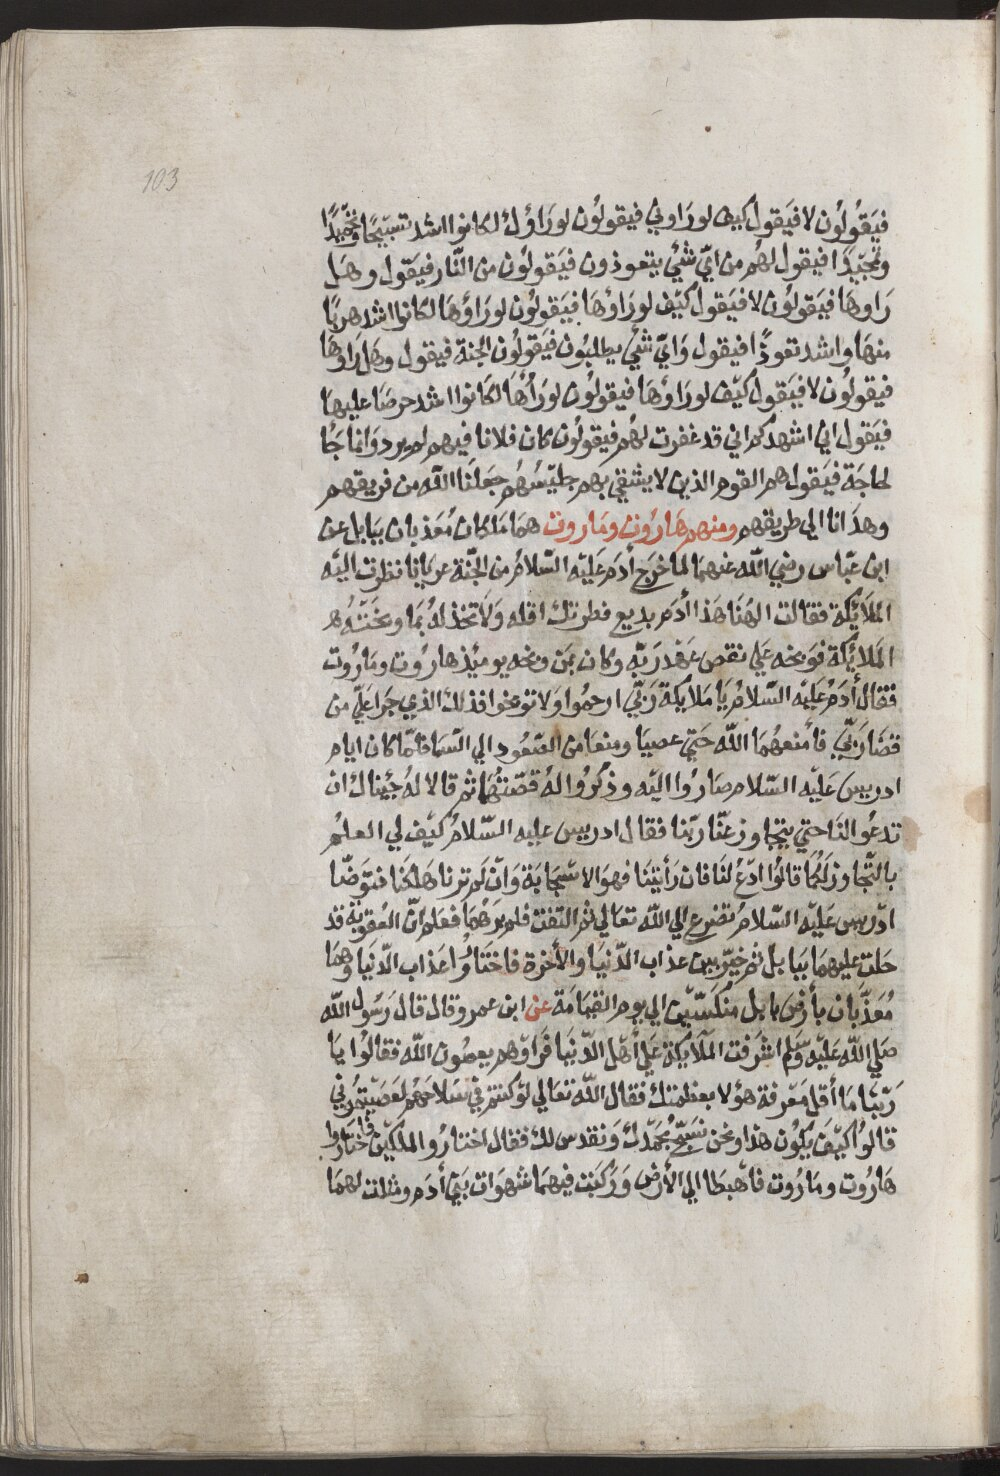 103
فيَقُولُون لا فيَقول كيف لوراوني فيقولوُن لورَاوْك لكانوا اشد تسبيحًا وتحميدًا
وتمجيدًا فيقول لهُم من ايّ شئ يتعوذون فيَقولوُن من النّار فيَقول وهَل
رَاوهَا فيَقولوُن لا فيَقول كيّف لورَاوْهَا فيَقولوُن لورَاؤهَا لكانوا اشد هربًا
منهَا واشد تعوذًا فيقول وَايّ شئ يطلبُون فيَقولوُن الجنة فيقول وهَل رَاوْهَا
فيقولوُن لا فيَقول كيّف لورَاوْهَا فيقولوُن لورَاُهَا لكَانوا اشد حرصَا عليهَا
فيَقول اني اشهدكم اني قد غفرت لهُم فيقولوُن كان فلانا فيهم لم يردوَانما جَا
لحاجَة فيَقول هم القوم الذين لا يشقي بهم جليّسُهُم جَعلنَا الله من فريقهم
وهدَانا الي طريقهم ومنهم هَارُوت ومَاروت همَا مَلكان مُعَذبان ببَابل عن
ابن عبّاس رضي اللّه عنهمَا لما خرَج أدمَ عَليْه السّلامُ من الجّنة عريَانا نظرت اليّه
الملَايّكة فقالت الهُنَا هَذا أدَم بديع فطرتك اقله وَلَا تخذلهُ بمَا وبختهُ
المَلايُكة فوَبخه عَلي نقص عَهْد رَبّه وكان بمَن وبخه يوميُذ هارُوت ومَارُوت
فقال أدَمُ عَليْه السّلامُ يَا مَلايكة رَبّي ارحمُوا وَلا توبخوا فذلك الذي جَرَا عَليّ من
قضَا رَبّي فأمنعهُمَا اللّه حَتي عصيَا ومنعَا من الصّعُود الي السّمَا فلمّا كان ايام
ادريس عَليْه السّلام صَارُوا اليّه وذكرُوا لهُ قصّتهُمَا ثم قالا لهُ جئنالك ان
تدعُو لنَا حتي يتجَاوزعنّا ربّنا فقال ادريس عليه السّلامُ كيّف لي العلمُ
بالتّجاوزلكُما قالوُا ادّعُ لنَا فان رَأيتنَا فهوَ الاستجَابَة وَانّ لم ترنا هَلكنَا فتوَضّا
ادّريس عَليْه السّلامُ تضرع الي اللّه تعَالي ثم التّفت فلم يَرَهُمَا فعَلم انّ العُقوبة قد
حَلت عليهمَا ببَابل ثم خيّر بين عذاب الدّنيَا والأخرة فاختَارُوا عَذاب الدّنيَا وهمَا
مُعَذّبَان بأرضْ بابل منكسّيّن الي يوم القيَامَة عن ابن عمر وقال قال رَسُول اللّه
صَلي اللّه عَليْه وَسّلم اشرَفت المَلَايكة عَلي أهّل الدّنيَا فرَاوّهم يعصُون اللّه فقالوُا يَا
رَبّنَا مَا أقل مَعّرفة هؤلا بعظمتك فقال اللّه تعَالي لوّ كنتم في مسَلاخهُم لعَصيْتمُوني
قالوُا كيّفَ يَكوُن هذا ونحن نسَبّحُ بحُمدّك ونقدس لك فقال اختارُوا ملكيّن فاختارُوا
هَارُوت ومَارُوت فأهبطا الي الأرضْ وَرُكبَت فيهمَا شهوَات بَني أدَم ومثلت لهمَا